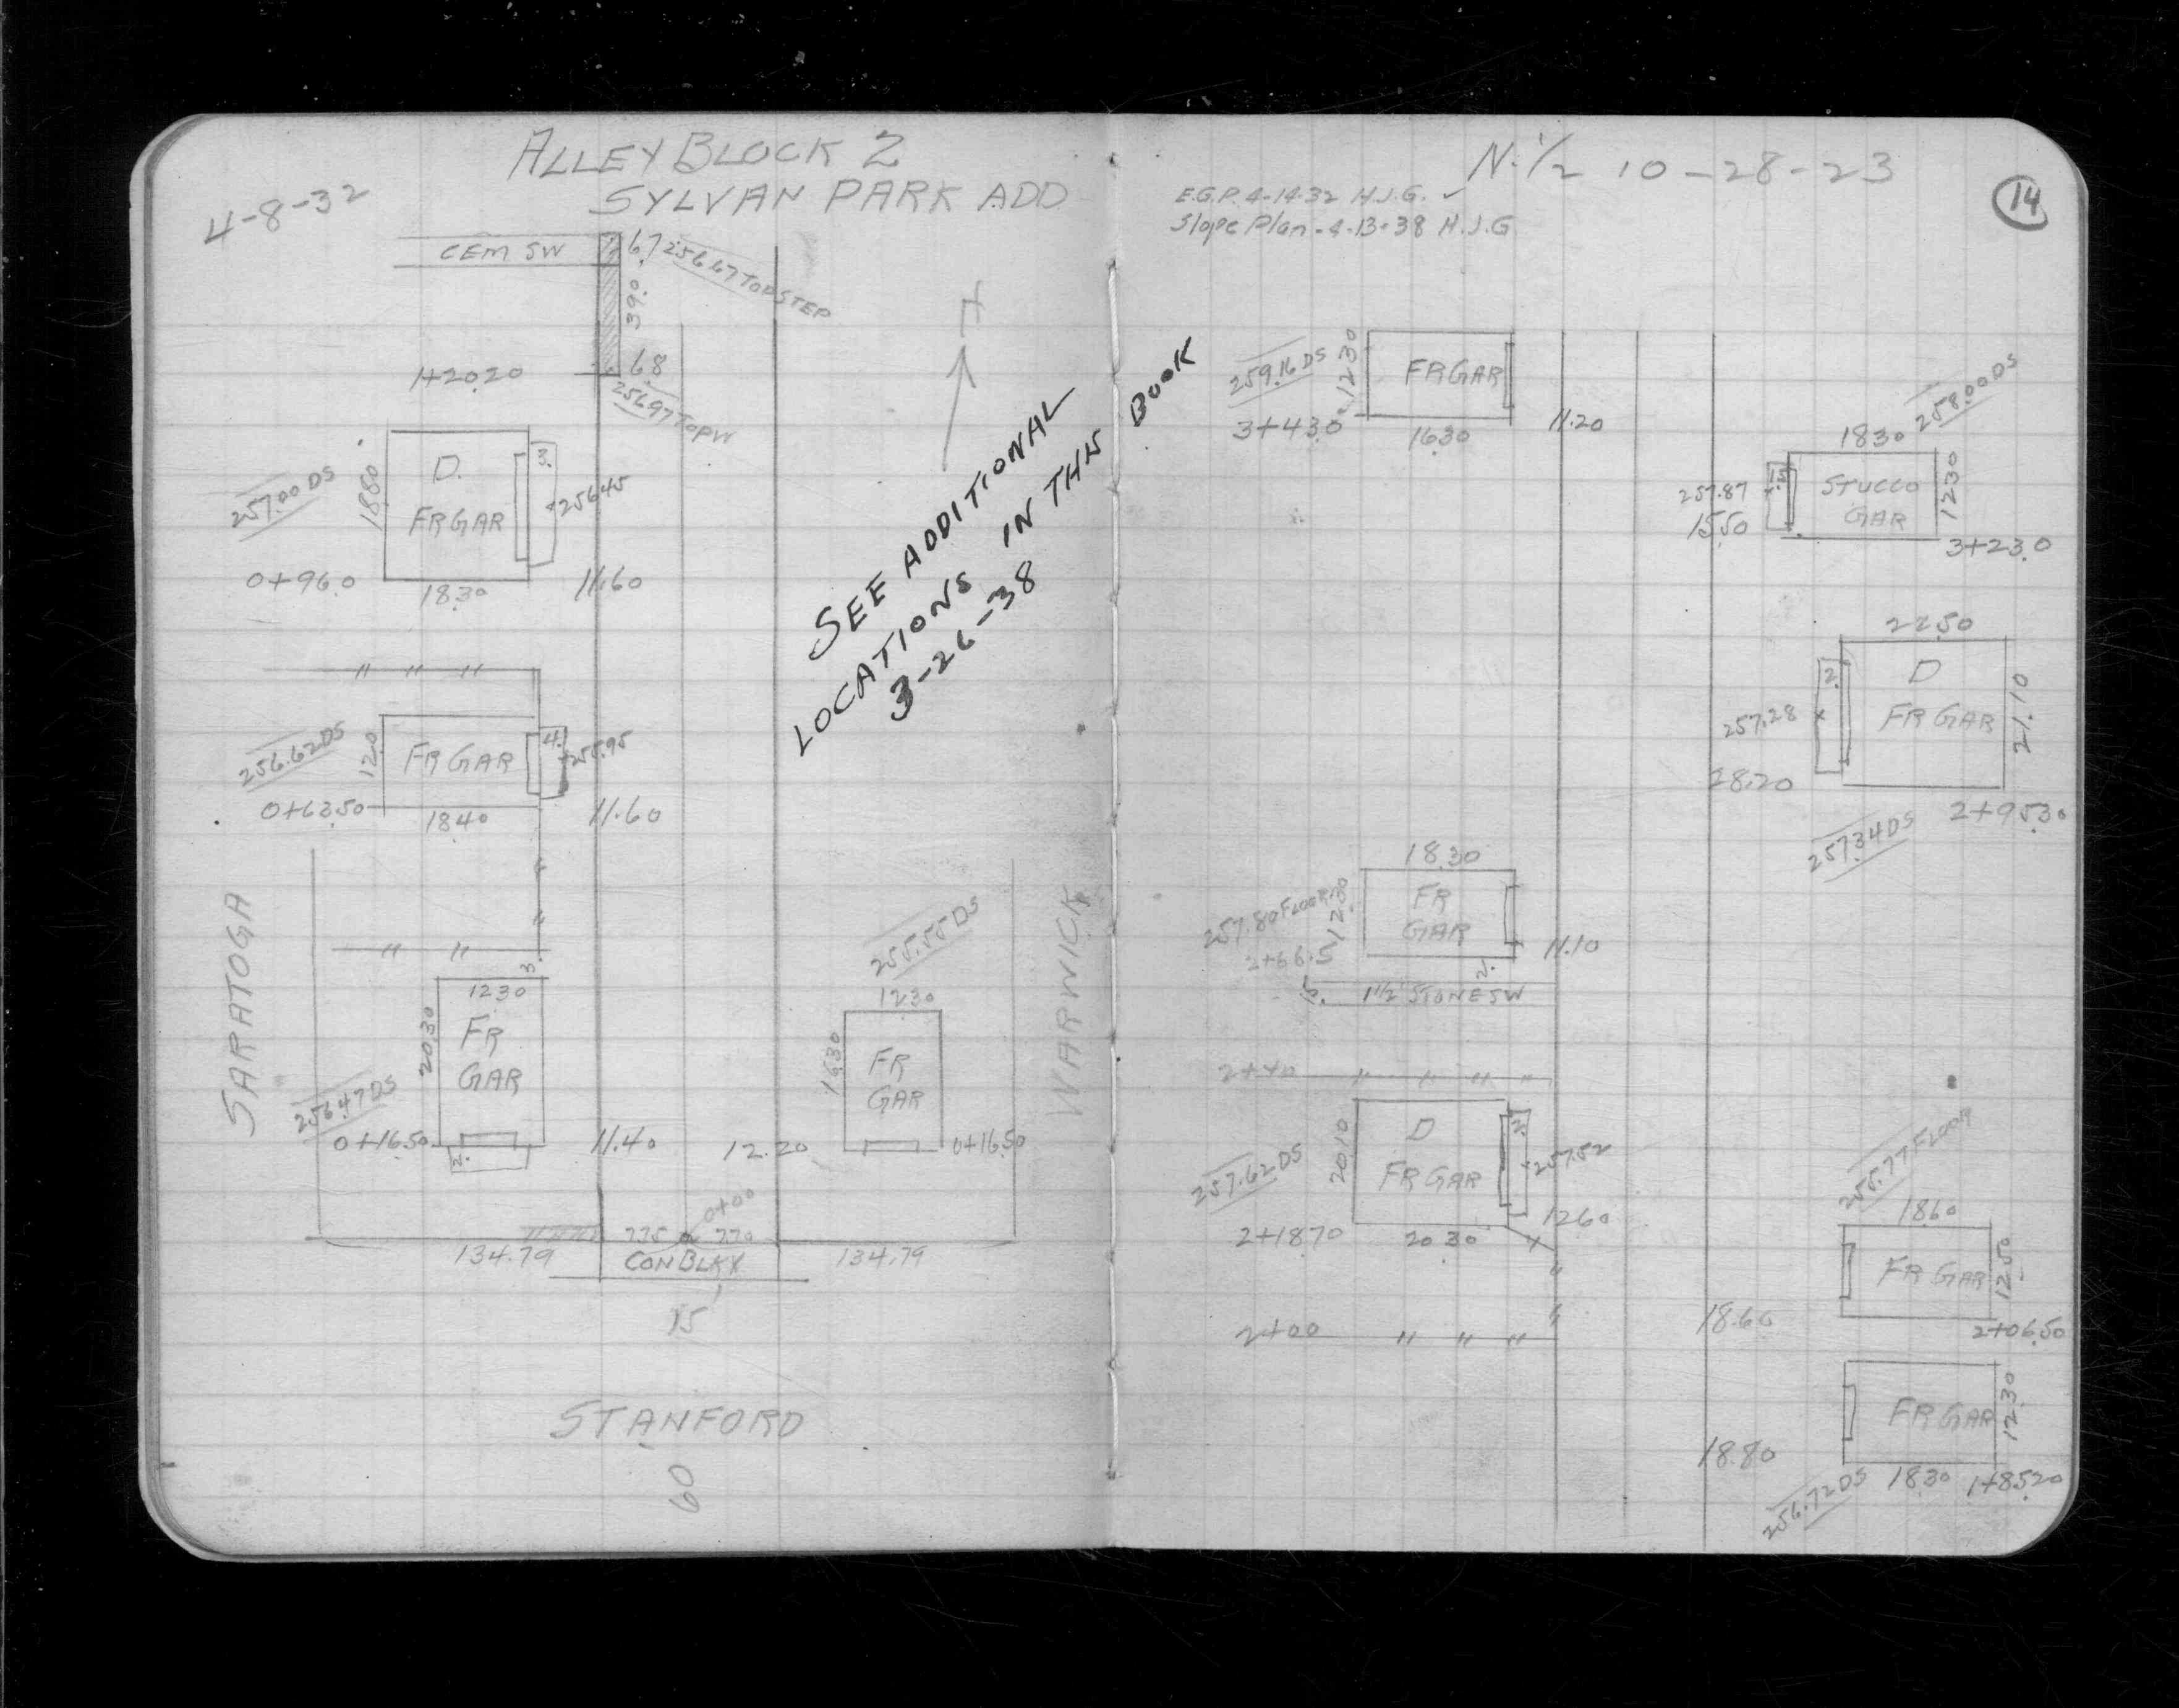 ALLEY BLOCK 2
SYLVAN PARK ADD
4-8-32
CEM SW
6.7
256.67 TOP STEP
39.0
6.8
256.97 TOP W
1+20.20
257.00 DS
18.80
D.
FR GAR
3.
256.45
0+96.0
18.30
11.60
" " "
256.62 DS
12.0
FR GAR
4.
255.95
0+63.50
18.40
11.60
"
"
" "
3.
SARATOGA
12.30
20.30
FR
GAR
256.47 DS
0+16.50
2.
11.40
255.55 DS
12.30
16.30
FR
GAR
12.20
0+16.50
WARWICK
0+00
7.75
7.70
134.79
CON BLKX
134.79
15'
STANFORD
60
SEE ADDITIONAL
LOCATIONS IN THIS BOOK
3-26-38
N.½ 10-28-23
14
E.G.P. 4-14-32 H.J.G. ✓
Slope Plan - 4-13-38 H.J.G
259.16 DS
12.30
FR GAR
3+43.0
16.30
11.20
258.00 DS
18.30
257.87
15.50
STUCCO
GAR
12.30
3+23.0
22.50
2.
D
FR GAR
21.10
257.28
28.20
2+95.30
257.34 DS
18.30
257.80 FLOOR
12.30
FR
GAR
2+66.5
11.10
2.
1½' STONE SW
2+40
" " " "
257.62 DS
20.10
D
FR GAR
2.
257.52
2+18.70
20.30
12.60
"
"
2+00
" " "
255.77 FLOOR
18.60
FR GAR
12.50
18.60
2+06.50
FR GAR
12.30
18.80
256.72 DS
18.30
1+85.20